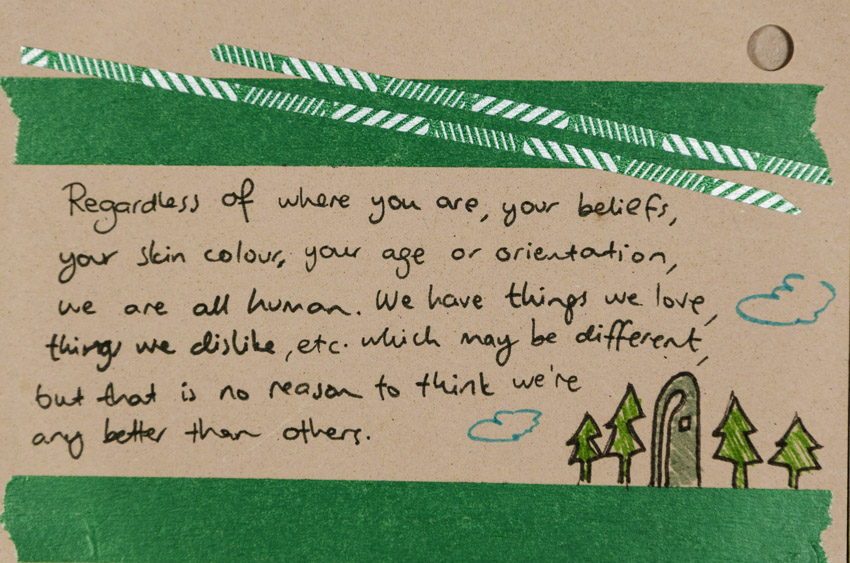 Regardless of where you are, your beliefs,
your skin colour, your age or orientation,
we are all human. We have things we love,
things we dislike, etc. which may be different,
but that is no reason to think we're
any better than others.